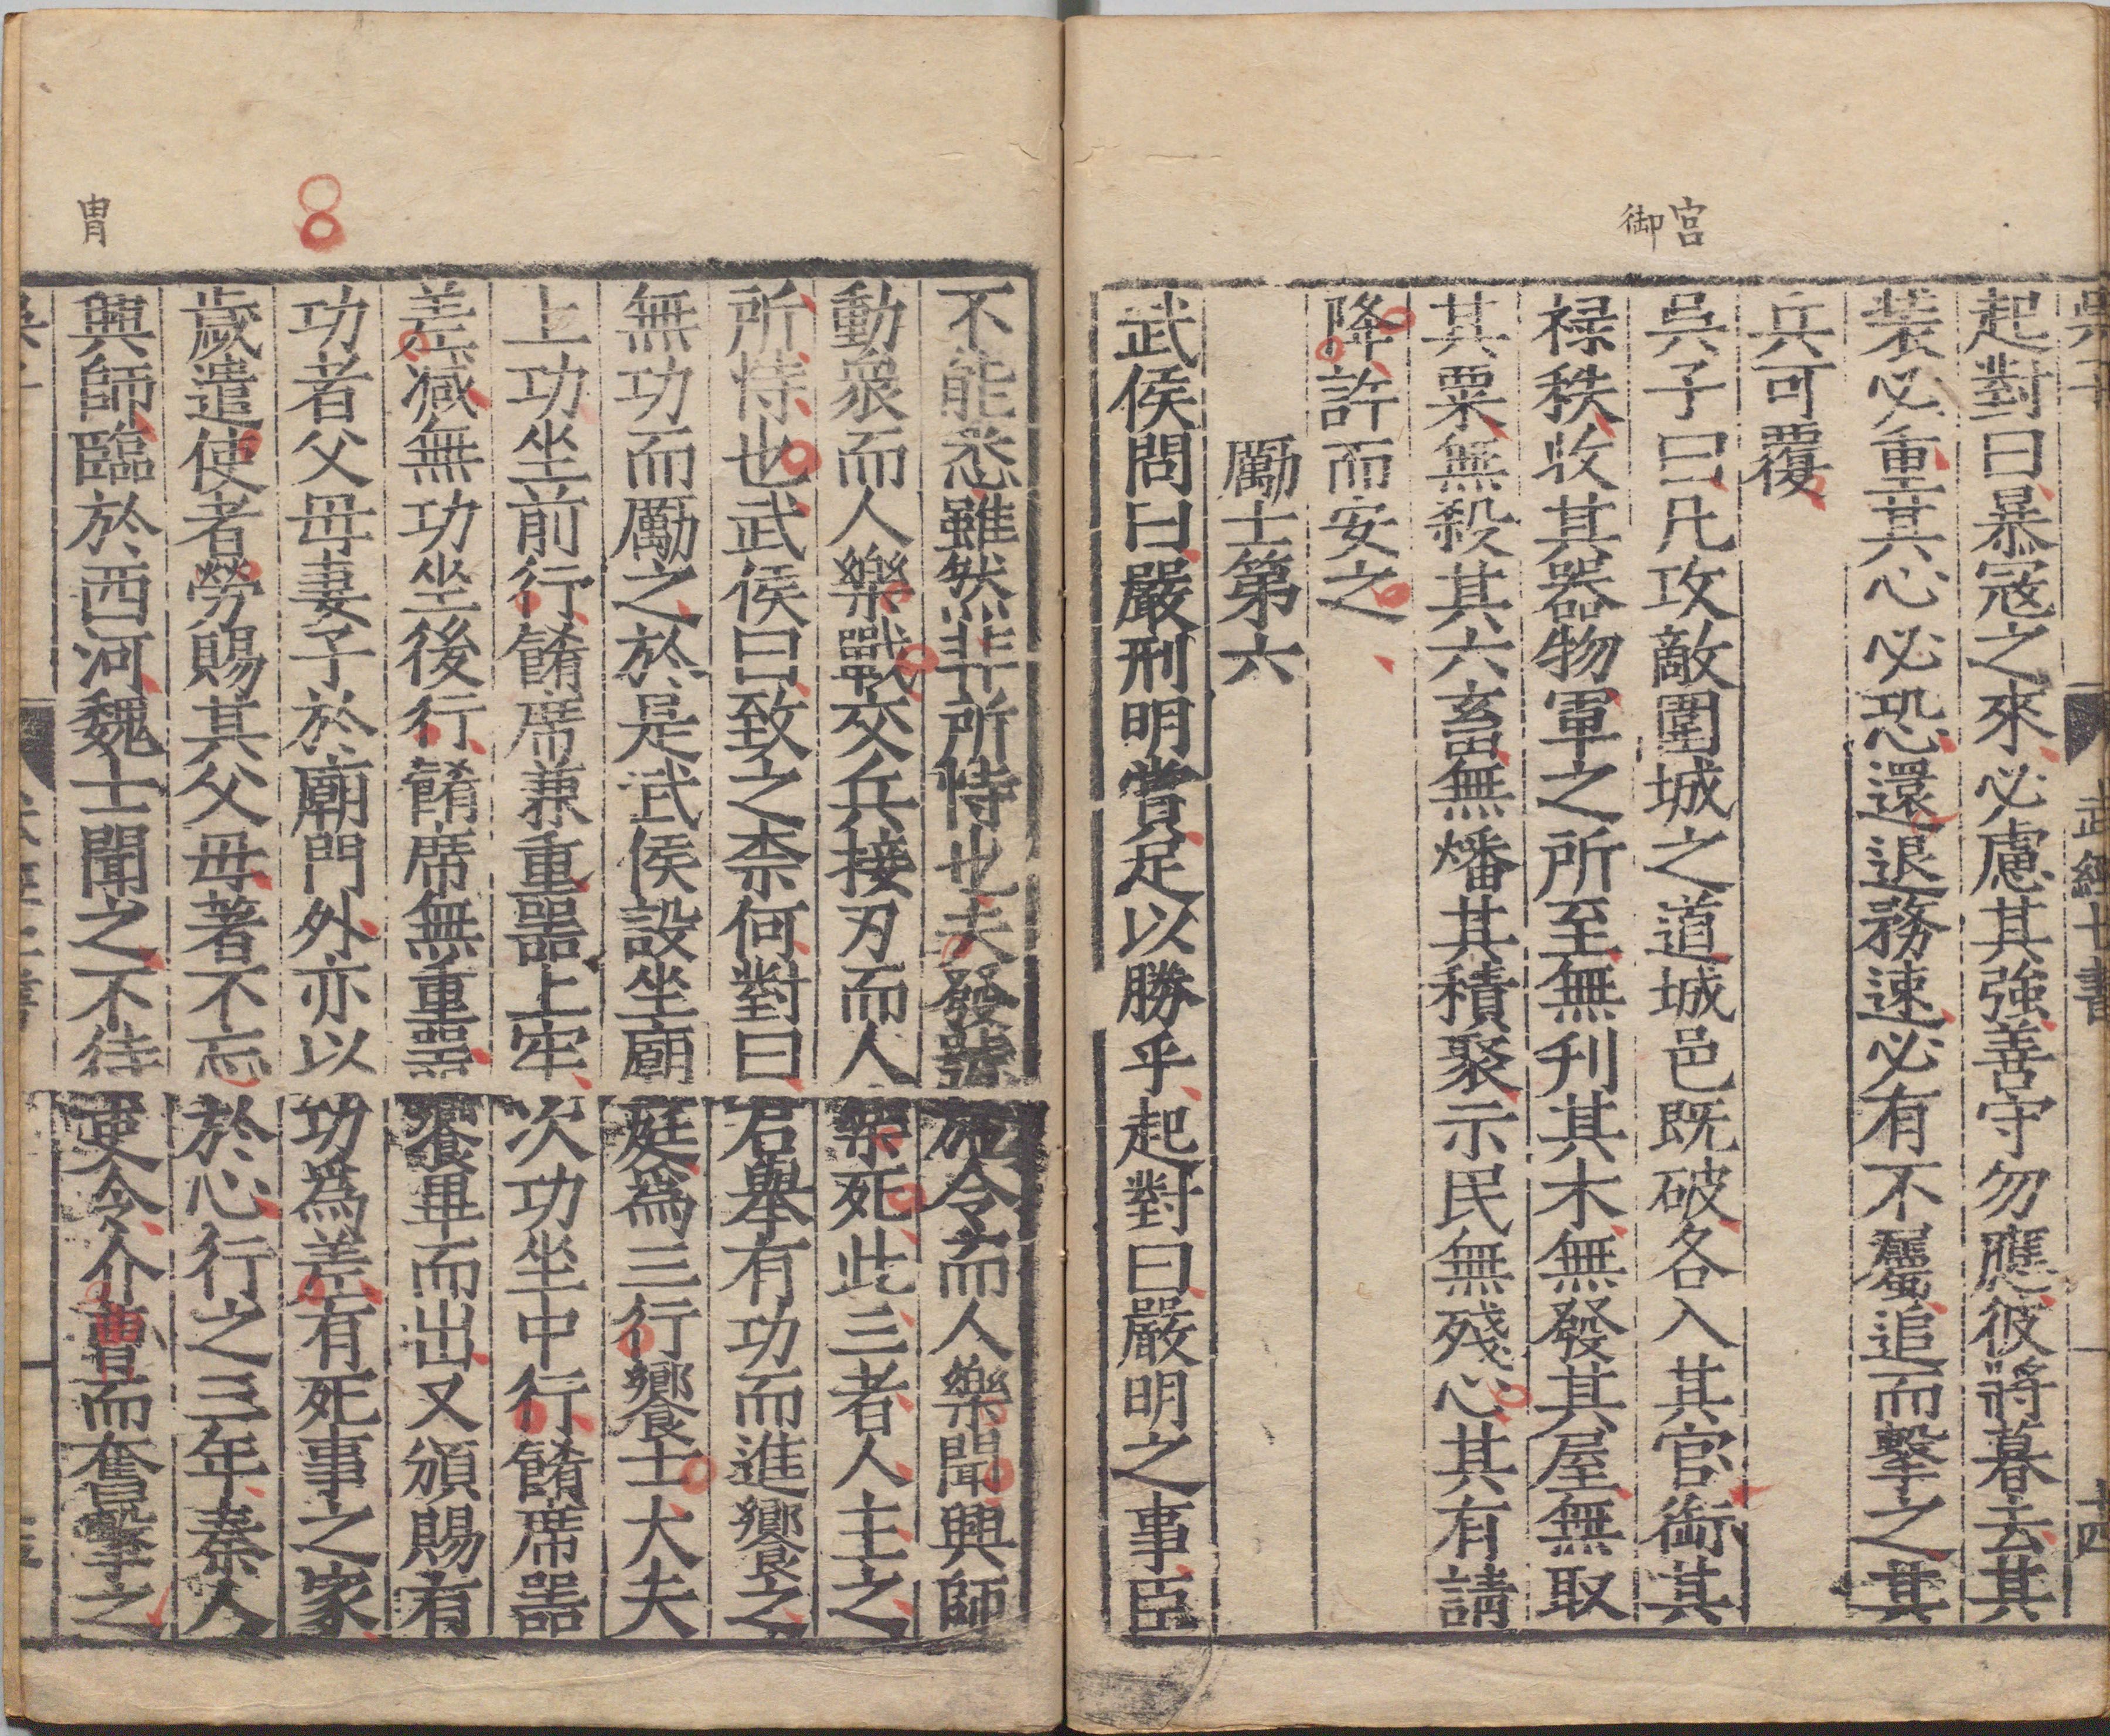 宮
御
起對曰暴寇之來必慮其強善守勿應彼將暮去其
裝必重其心必恐還退務速必有不屬追而擊之其
兵可覆
吳子曰凡攻敵圍城之道城邑既破各入其官御其
祿秩收其器物軍之所至無刋其木無發其屋無取
其粟無殺其六畜無燔其積聚示民無殘心其有請
降許而安之
勵士第六
武侯問曰嚴刑明賞足以勝乎起對曰嚴明之事臣
冑
不能悉雖然非所恃也夫發號施令而人樂聞興師
動衆而人樂戰交兵接刃而人樂死此三者人主之
所恃也武侯曰致之柰何對曰君舉有功而進饗之
無功而勵之於是武侯設坐廟庭爲三行饗士大夫
上功坐前行餚席兼重器上牢次功坐中行餚席器
差減無功坐後行餚席無重器饗畢而出又頒賜有
功者父母妻子於廟門外亦以功爲差有死事之家
歲遣使者勞賜其父母著不忘於心行之三年秦人
興師臨於西河魏士聞之不待吏令介冑而奮擊之